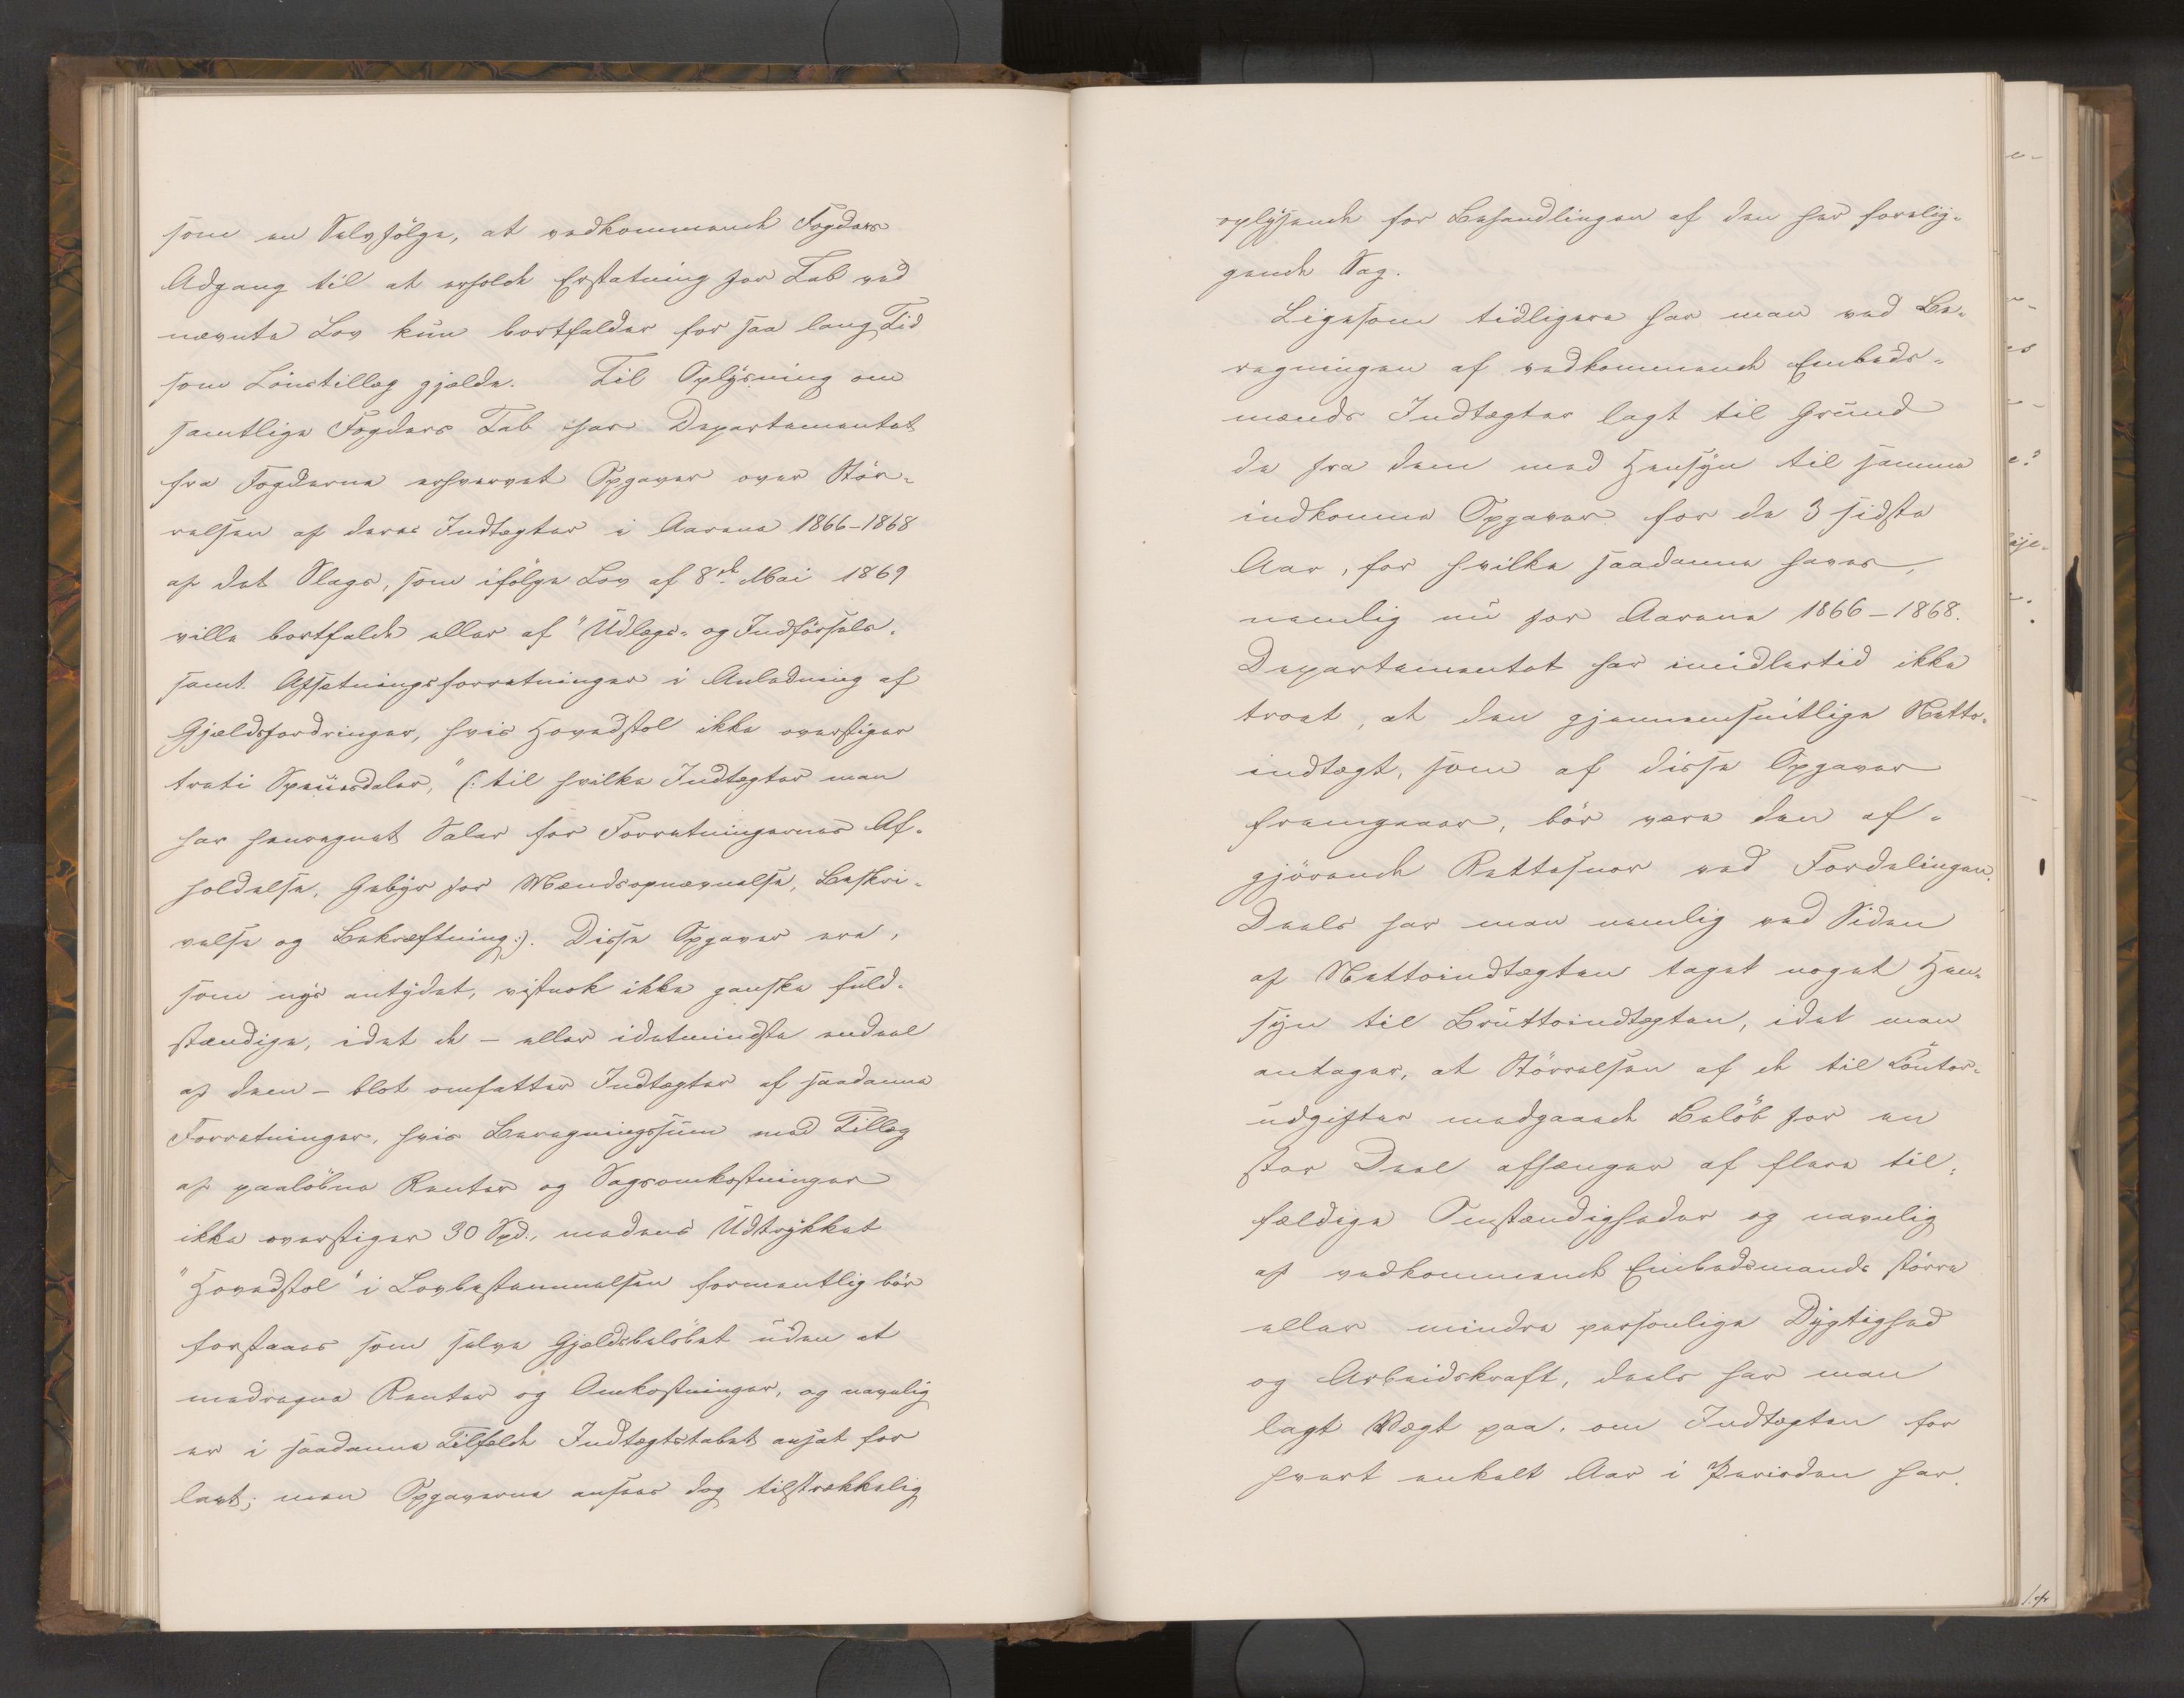 som en Selvfölge, at vedkommende Fogders
Adgang til at erholde Erstatning for Tab ved
nævnte Lov kun bortfalder for saa lang Tid
som Lönstillæg gjelde. Til Oplysning om
samtlige Fogders Tab har Departementet
fra Fogderne erhvervet Opgaver over Stör-
relsen af deres Indtægter i Aarene 1866-1868
af det Slags, som ifölge Lov af 8de Mai 1869
ville bortfalde eller af "Udlægs- og Indförsels-
samt Afsætningsforretninger i Anledning af
Gjeldsfordringer, hvis Hovedstol ikke overstiger
treti Speciesdaler," (: til hvilke Indtægter man
har henregnet Salær for Forretningernes Af-
holdelse, Gebyr for Mændsopnævnelse, Beskri-
velse og Bekræftning:). Disse Opgaver ere,
som nys antydet, vistnok ikke ganske fuld-
stændige, idet de - eller idetmindste endeel
af dem - blot omfatter Indtægter af saadanne
Forretninger, hvis Beregningssum med Tillæg
af paalöbne Renter og Sagsomkostninger
ikke overstiger 30 Spd., medens Udtrykket
"Hovedstol" i Lovbestemmelsen formentlig bör
forstaaes som selve Gjeldsbelöbet uden at
medregne Renter og Omkostninger, og navnlig
er i saadanne Tilfelde Indtægtstabet ansat for
lavt; men Opgaverne ansees dog tilstrækkelig
oplysende for Behandlingen af den her forelig-
gende Sag.
Ligesom tidligere har man ved Be-
regningen af vedkommende Embeds-
mænds Indtægter lagt til Grund
de fra dem med Hensyn til samme
indkomne Opgaver for de 3 sidste
Aar, for hvilke saadanne haves,
nemlig nu for Aarene 1866-1868.
Departementet har imidlertid ikke
troet, at den gjennemsnitlige Netto-
indtægt, som af disse Opgaver
fremgaaer, bör være den af-
gjörende Rettesnor ved Fordelingen.
Deels har man nemlig ved Siden
af Nettoindtægten taget noget Hen-
syn til Bruttoindtægten, idet man
antager, at Störrelsen af de til Contor-
udgifter medgaaede Belöb for en
stor Deel afhænger af flere til-
fældige Omstændigheder og navnlig
af vedkommende Embedsmands större
eller mindre personlige Dygtighed
og Arbeidskraft, deels har man
lagt Vægt paa, om Indtægten for
hvert enkelt Aar i Perioden har